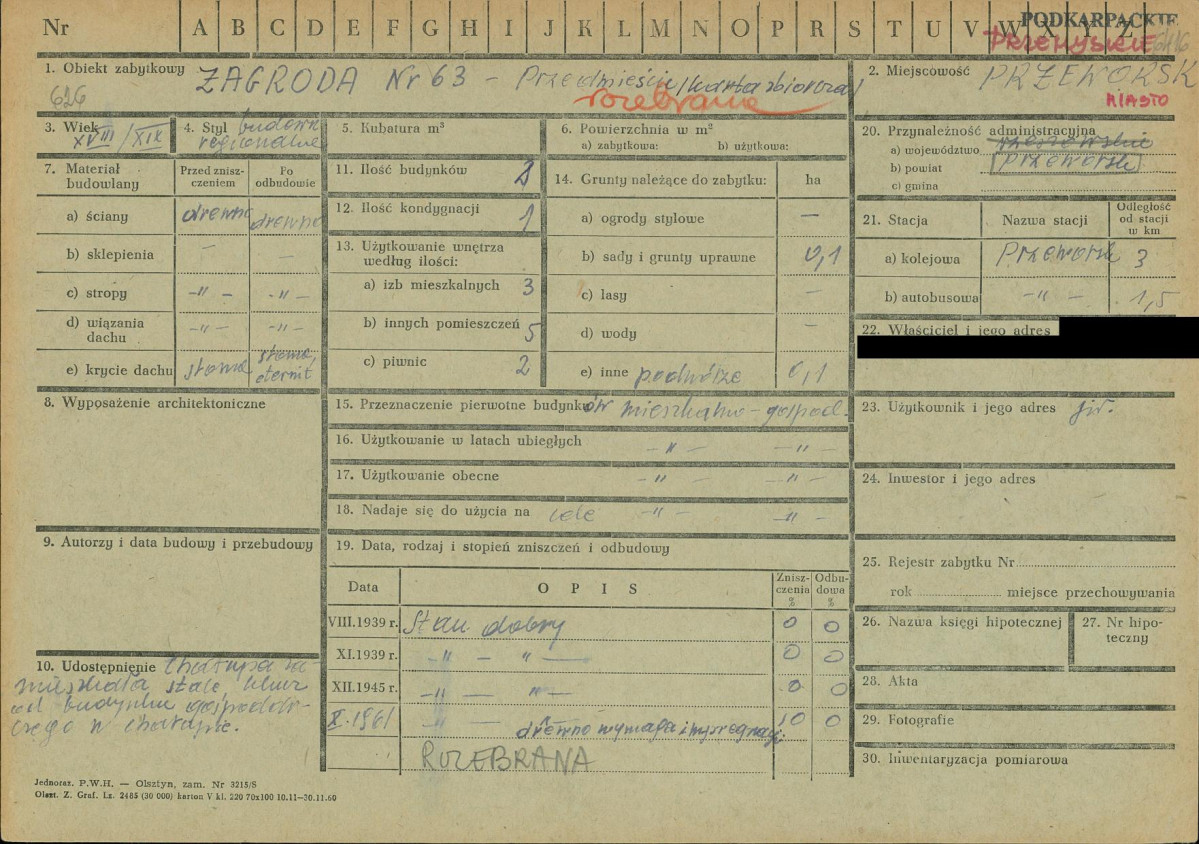 Nr A B C D E F G H I J K L M N O P R S T U V W X Y Z
PODKARPACKIE
PRZEMYSKIE
1. Obiekt zabytkowy ZAGRODA Nr 63 – Przedmieście /karta zbiorcza/
626
rozebrana
2. Miejscowość PRZEWORSK
MIASTO
3. Wiek XVIII/XIX
4. Styl budown. regionalne
5. Kubatura m³
6. Powierzchnia w m²
a) zabytkowa: b) użytkowa:
7. Materiał budowlany
Przed zniszczeniem
Po odbudowie
a) ściany drewno drewno
b) sklepienia – –
c) stropy -"- -"-
d) wiązania dachu -"- -"-
e) krycie dachu słoma słoma, eternit
8. Wyposażenie architektoniczne
9. Autorzy i data budowy i przebudowy
10. Udostępnienie Chałupa zamieszkała stale, klucz
od budynku gospodarczego w chałupie.
11. Ilość budynków
12. Ilość kondygnacji 1
13. Użytkowanie wnętrza według ilości:
a) izb mieszkalnych 3
b) innych pomieszczeń 5
c) piwnic 2
14. Grunty należące do zabytku: ha
a) ogrody stylowe –
b) sady i grunty uprawne 0,1
c) lasy –
d) wody –
e) inne podwórze 0,1
15. Przeznaczenie pierwotne budynków mieszkalno-gospod.
16. Użytkowanie w latach ubiegłych -"- -"-
17. Użytkowanie obecne -"- -"-
18. Nadaje się do użycia na cele -"- -"-
19. Data, rodzaj i stopień zniszczeń i odbudowy
Data OPIS Zniszczenia % Odbudowa %
VIII.1939 r. Stan dobry 0 0
XI.1939 r. -"- -"- 0 0
XII.1945 r. -"- -"- 0 0
X.1961 -"- drewno wymaga impregnacji 10 0
ROZEBRANA
20. Przynależność administracyjna
a) województwo rzeszowskie
b) powiat przeworsk
c) gmina
21. Stacja Nazwa stacji Odległość od stacji w km
a) kolejowa Przeworsk 3
b) autobusowa -"- 1,5
22. Właściciel i jego adres
23. Użytkownik i jego adres jw.
24. Inwestor i jego adres
25. Rejestr zabytku Nr
rok miejsce przechowywania
26. Nazwa księgi hipotecznej
27. Nr hipoteczny
28. Akta
29. Fotografie
30. Inwentaryzacja pomiarowa
Jednoraz. P.W.H. — Olsztyn, zam. Nr 3215/S
Olszt. Z. Graf. Lz. 2485 (30 000) karton V kl. 220 70x100 10.11—30.11.60